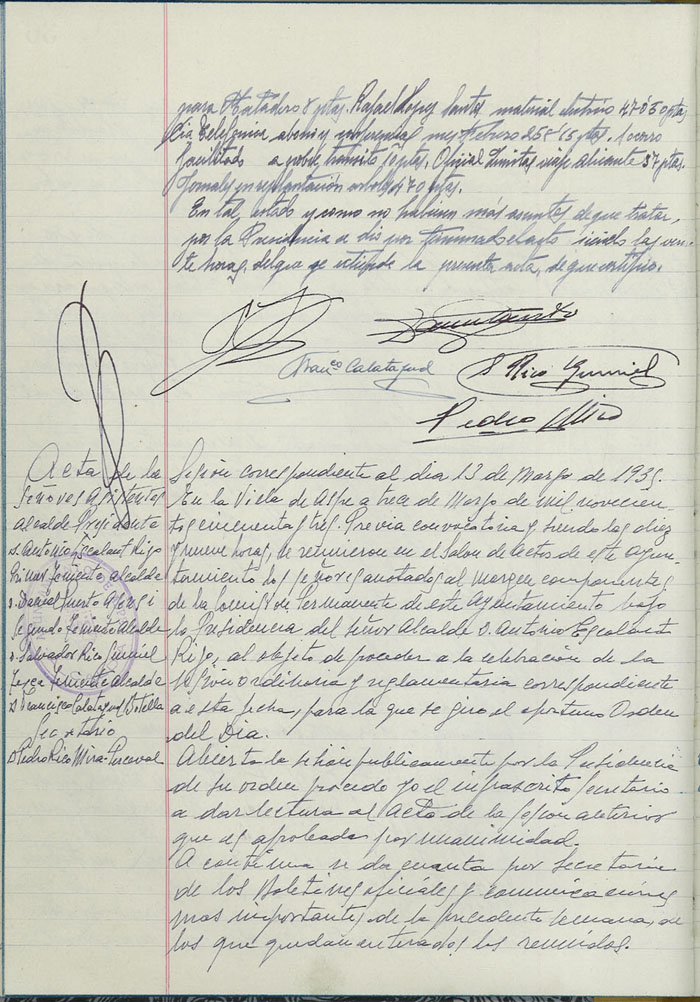 para Matadero 8 ptas. Rafael López Santos material eléctrico 470'50 ptas
Cia Telefónica abonos y conferencias mes Febrero 258'15 ptas. Socorro
facilitado a pobre transito 5 ptas. Oficial viaje Alicante 37 ptas.
Jornales en replantación arboles 470 ptas.
En tal estado y como no habian más asuntos de que tratar,
por la Presidencia se dio por terminado el acto siendo las vein-
te horas, de que se extiende la presente acta, de que certifico.
Franco Calatayud
S Rico Gumiel
Pedro Mira
Acta de la Sesión correspondiente al dia 13 de Marzo de 1953.
Señores Asistentes
Alcalde Presidente
D. Antonio Escalant Rigo
Primer Teniente Alcalde
D. Daniel Puerto
Segundo Teniente Alcalde
D. Salvador Rico Gumiel
Tercer Teniente Alcalde
D Francisco Calatayud Botella
Secretario
D Pedro Rico Mira-Perceval
En la Villa de Aspe a trece de Marzo de mil novecien-
tos cincuenta y tres. Previa convocatoria y siendo las diez
y nueve horas, se reunieron en el Salon de actos de este ayun-
tamiento los señores anotados al margen componentes
de la Comision Permanente de este Ayuntamiento bajo
la Presidencia del señor Alcalde D. Antonio Escalant
Rigo, al objeto de proceder a la celebración de la
sesion ordinaria y reglamentaria correspondiente
a esta fecha, para la que se giro el oportuno Orden
del Dia.
Abierta la sesion publicamente por la Presidencia
de su orden procedo yo el infrascrito Secretario
a dar lectura al acta de la sesion anterior
que es aprobada por unanimidad.
A continua se da cuenta por Secretaria
de los Boletines oficiales y comunicaciones
mas importantes de la precedente semana, de
los que quedan enterados los reunidos.